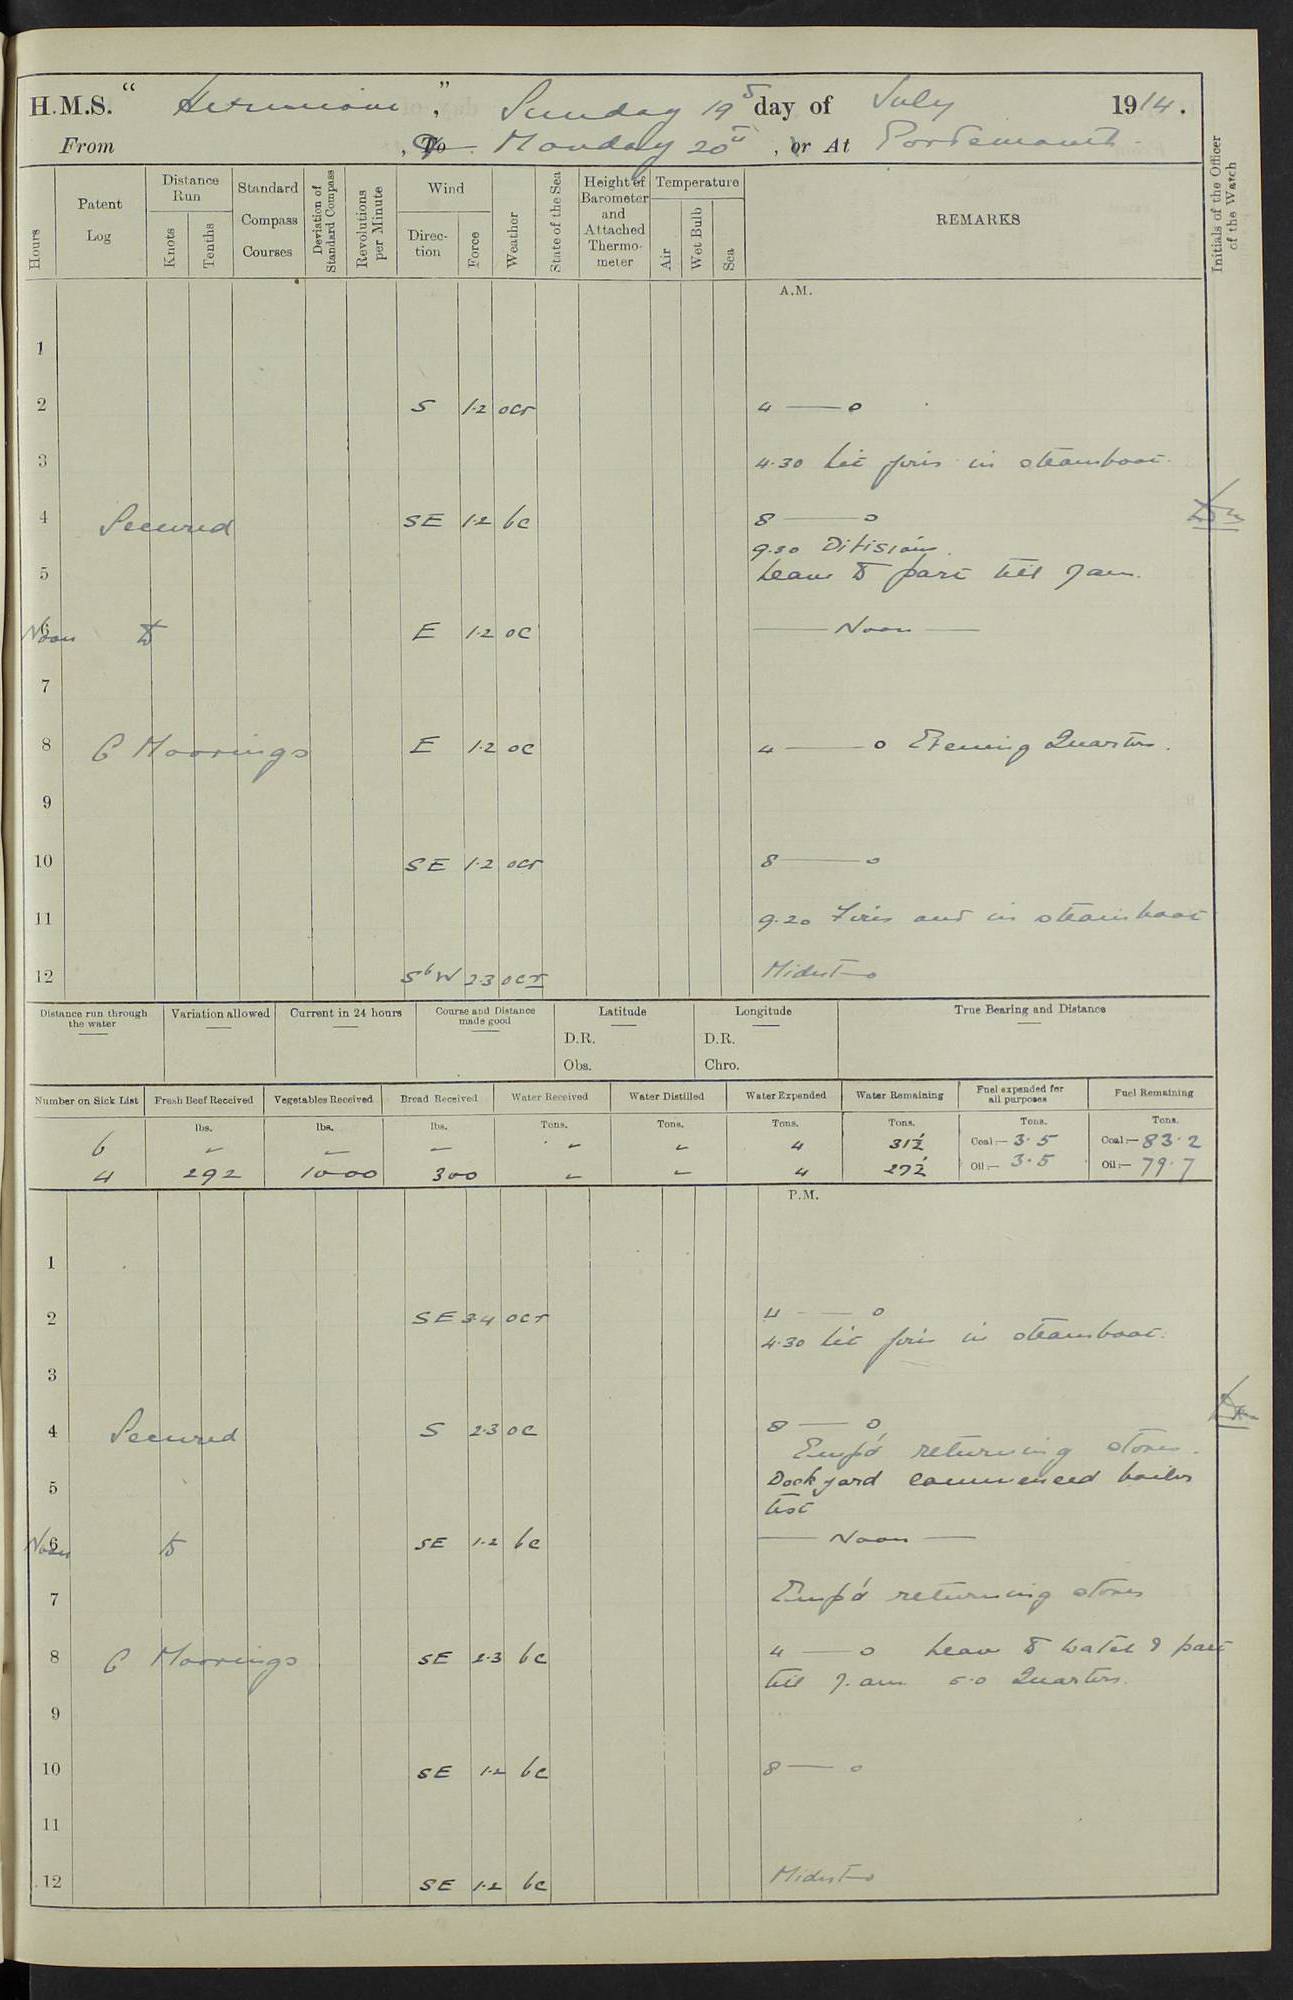 H.M.S. " Hermione ," Sunday 19th day of July 1914.
From , To Monday 20th , or At Portsmouth.
Hours
Patent Log
Distance Run
Knots
Tenths
Standard Compass Courses
Deviation of Standard Compass
Revolutions per Minute
Wind
Direction
Force
Weather
State of the Sea
Height of Barometer and Attached Thermometer
Temperature
Air
Wet Bulb
Sea
REMARKS
Initials of the Officer of the Watch
A.M.
1
2 S 1.2 ocr 4 — o
3 4.30 Lit fires in steamboat.
4 Secured SE 1.2 bc 8 — o
9.30 Divisions.
5 Leave to part till 7 am.
6 Noon to E 1.2 oc — Noon —
7
8 6 Moorings E 1.2 oc 4 — o Evening Quarters.
9
10 SE 1.2 ocr 8 — o
11 9.20 Fires out in steamboat
12 SbW 2.3 ocr Midnt — o
Distance run through the water
Variation allowed
Current in 24 hours
Course and Distance made good
Latitude
D.R.
Obs.
Longitude
D.R.
Chro.
True Bearing and Distance
Number on Sick List Fresh Beef Received Vegetables Received Bread Received Water Received Water Distilled Water Expended Water Remaining Fuel expended for all purposes Fuel Remaining
lbs. lbs. lbs. Tons. Tons. Tons. Tons. Tons. Tons.
6 – – – – – 4 31½ Coal:– 3.5 Coal:– 83.2
4 292 1000 300 – – 4 27½ Oil:– 3.5 Oil:– 79.7
P.M.
1
2 SE 3.4 ocr 4 — o
4.30 Lit fires in steamboat.
3
4 Secured S 2.3 oc 8 — o
Emp'd returning stores.
5 Dockyard commenced boiler
test
6 Noon to SE 1.2 bc — Noon —
7 Emp'd returning stores
8 6 Moorings SE 2.3 bc 4 — o Leave to watch & part
till 7. am. 5.0 Quarters.
9
10 SE 1.2 bc 8 — o
11
12 SE 1.2 bc Midnt — o